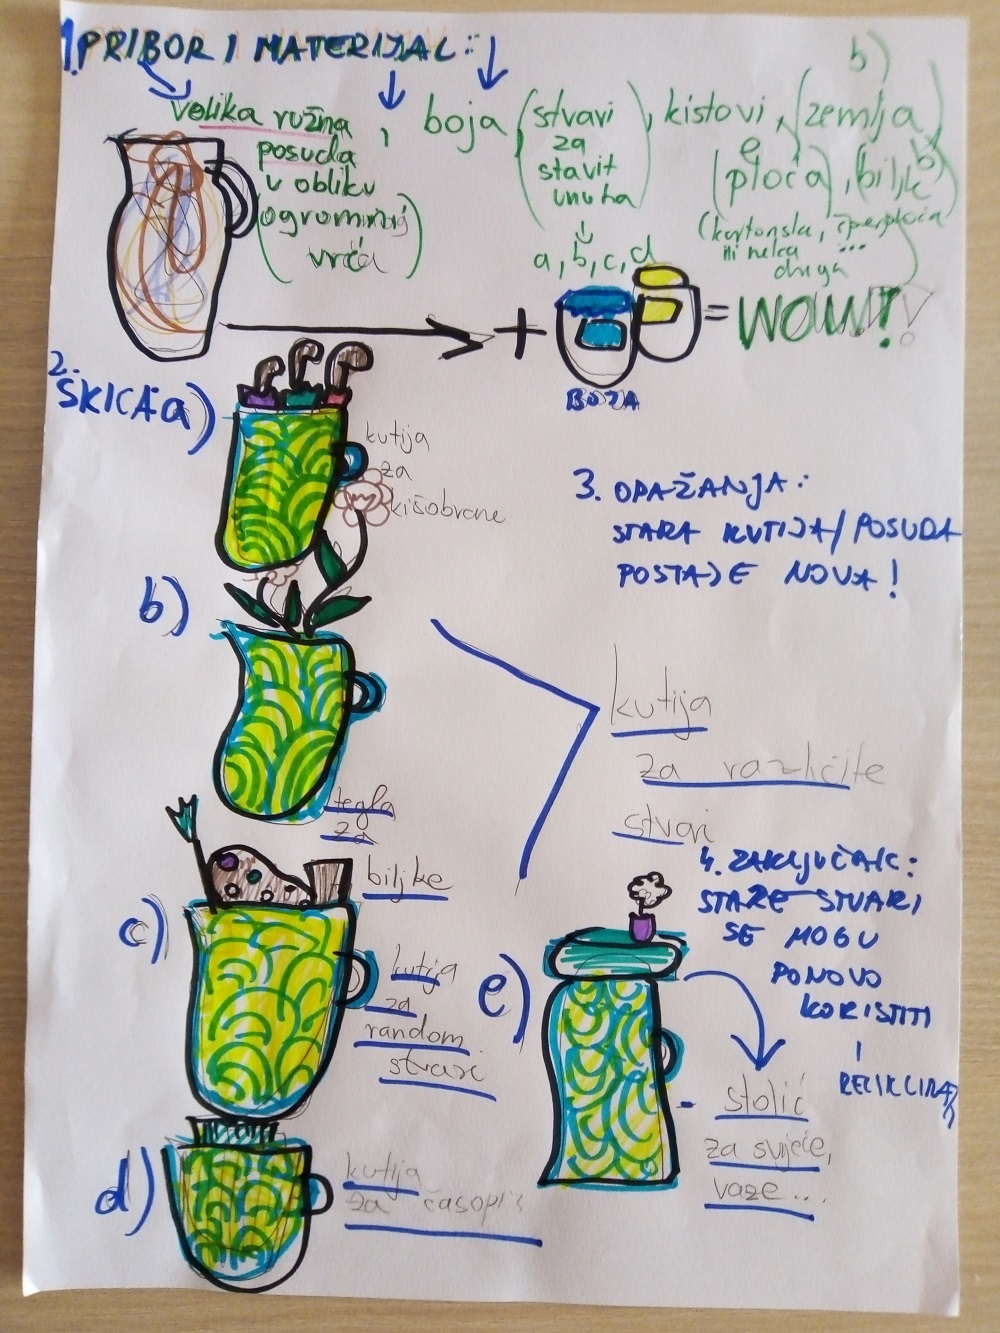 1. PRIBOR I MATERIJAL:
velika ružna
posuda
u obliku
(ogromnog
vrča)
, boja (stvari
za
stavit
unutra)
a, b, c, d
, kistovi,
b)
(zemlja
b)
e
(ploča), biljke
(kartonska, šperploča
ili neka ...
druga
+
= WOW!
BOJA
2.
SKICA a)
kutija
za
kišobrane
3. OPAŽANJA:
STARA KUTIJA/POSUDA
POSTAJE NOVA!
b)
tegla
za
biljke
kutija
za različite
stvari
c)
kutija
za
random
stvari
4. ZAKLJUČAK:
STARE STVARI
SE MOGU
PONOVO
KORISTITI
I
RECIKLIRATI
d)
kutija
za časopis
e)
- stolić
za svijeće,
vaze...